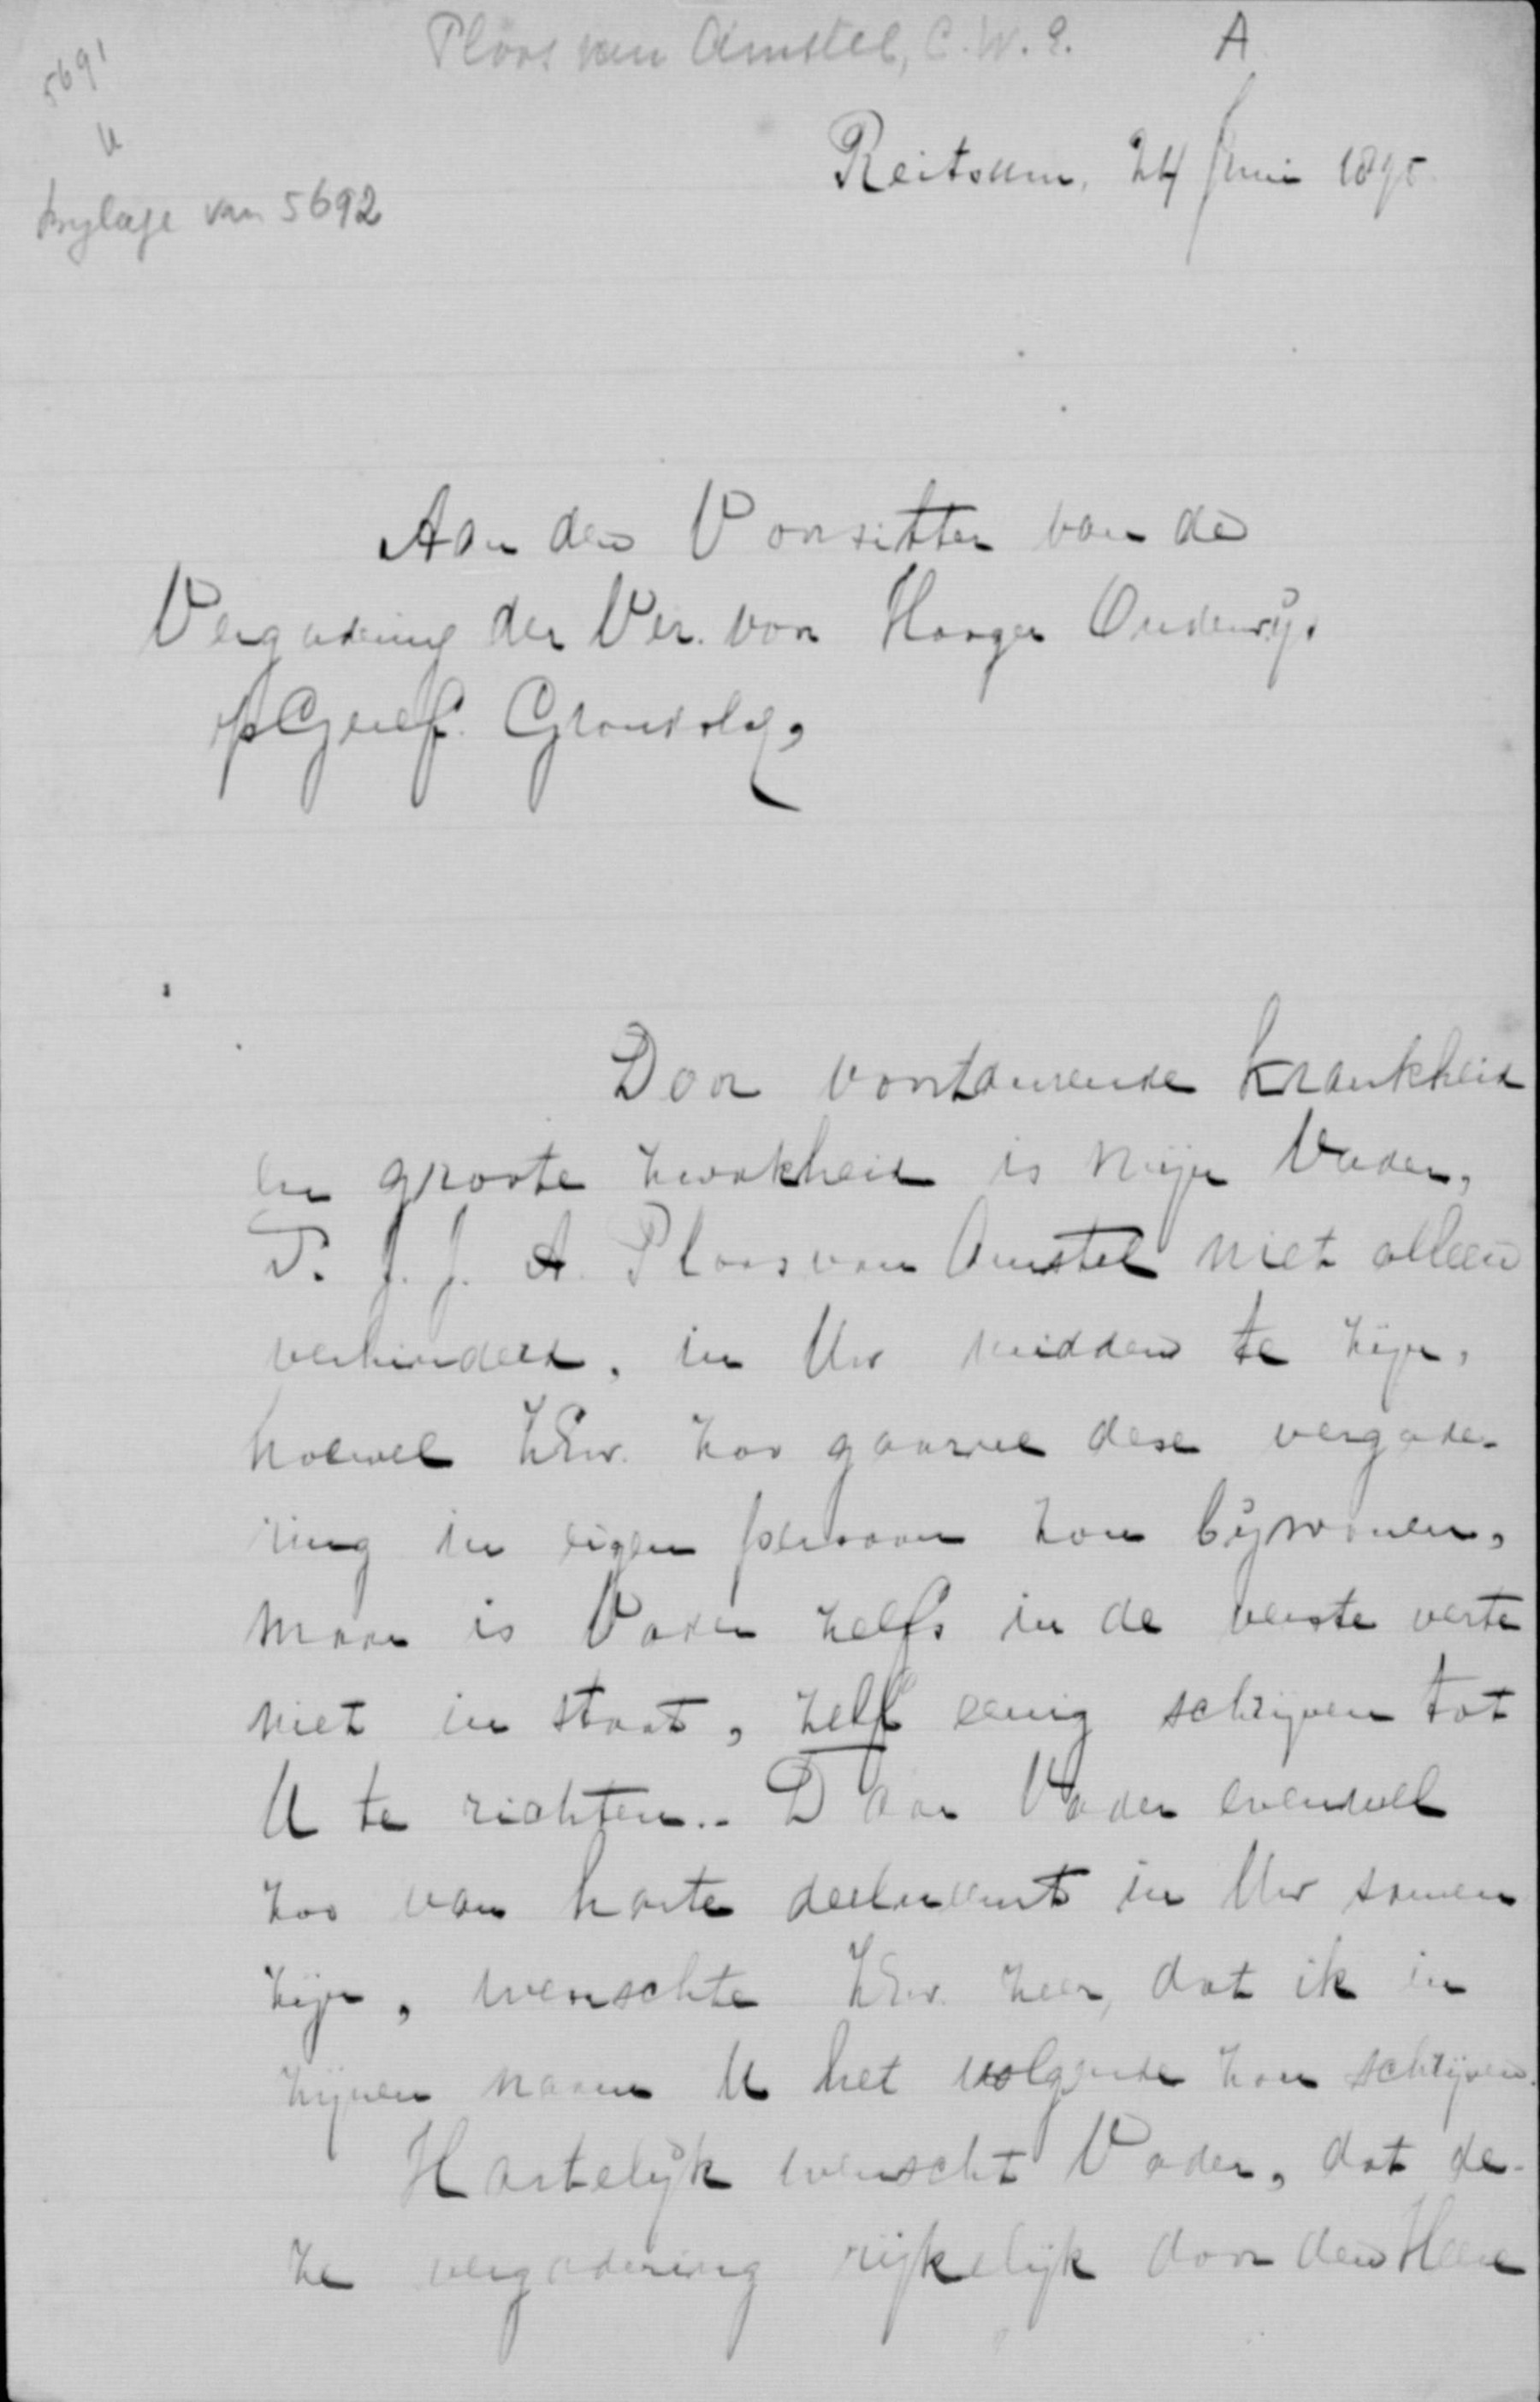 Ploos van Amstel, C.W.E. A
5691
U
bylage van 5692
Reitsum, 24 Juni 1895
Aan den Voorzitter van de
Vergadering der Ver. voor Hooger Onderwijs
op Geref. Grondslag,
Door voortdurende krankheid
en groote zwakheid is mijn Vader,
Ds. J. J. A. Ploos van Amstel niet alleen
verhinderd, in Uw midden te zijn,
hoewel ZEw. zoo gaarne deze vergade-
ring in eigen persoon zou bijwonen,
maar is Vader zelfs in de verste verte
niet in staat, zelf eenig schrijven tot
U te richten.. Daar Vader evenwel
zoo van harte deelneemt in Uw samen
zijn, wenschte ZEw. zeer, dat ik in
zijnen naam U het volgende zou schrijven.
Hartelijk wenscht Vader, dat de-
ze vergadering rijkelijk door den Heere